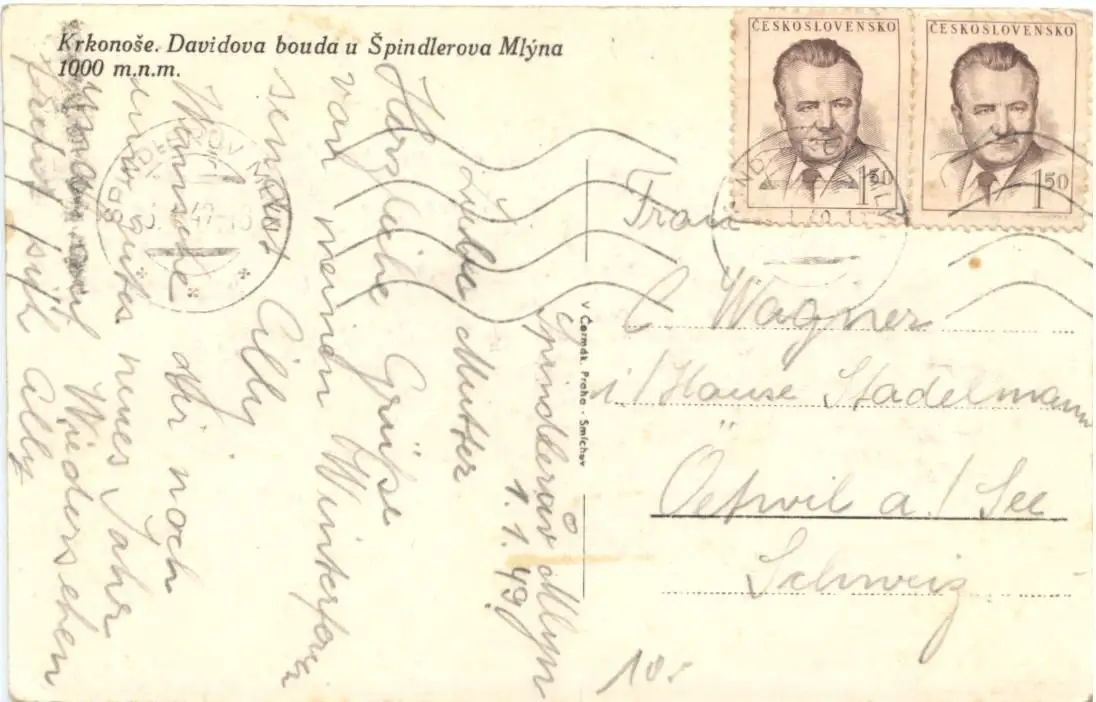 Krkonoše. Davidova bouda u Špindlerova Mlýna
1000 m.n.m.
ČESKOSLOVENSKO
1 50
ČESKOSLOVENSKO
1 50
Špindlerův Mlýn
1. 1. 49
Liebe Mutter
Herzliche Grüsse
von meinen Winterferien
sendet Cilly
Wünsche dir noch
ein gutes neues Jahr
und auf Wiedersehen
Cilly
V Čermák. Praha - Smíchov
Frau
C. Wagner
i/ Hause Stadelmann
Oetwil a/ See
Schweiz
10.-